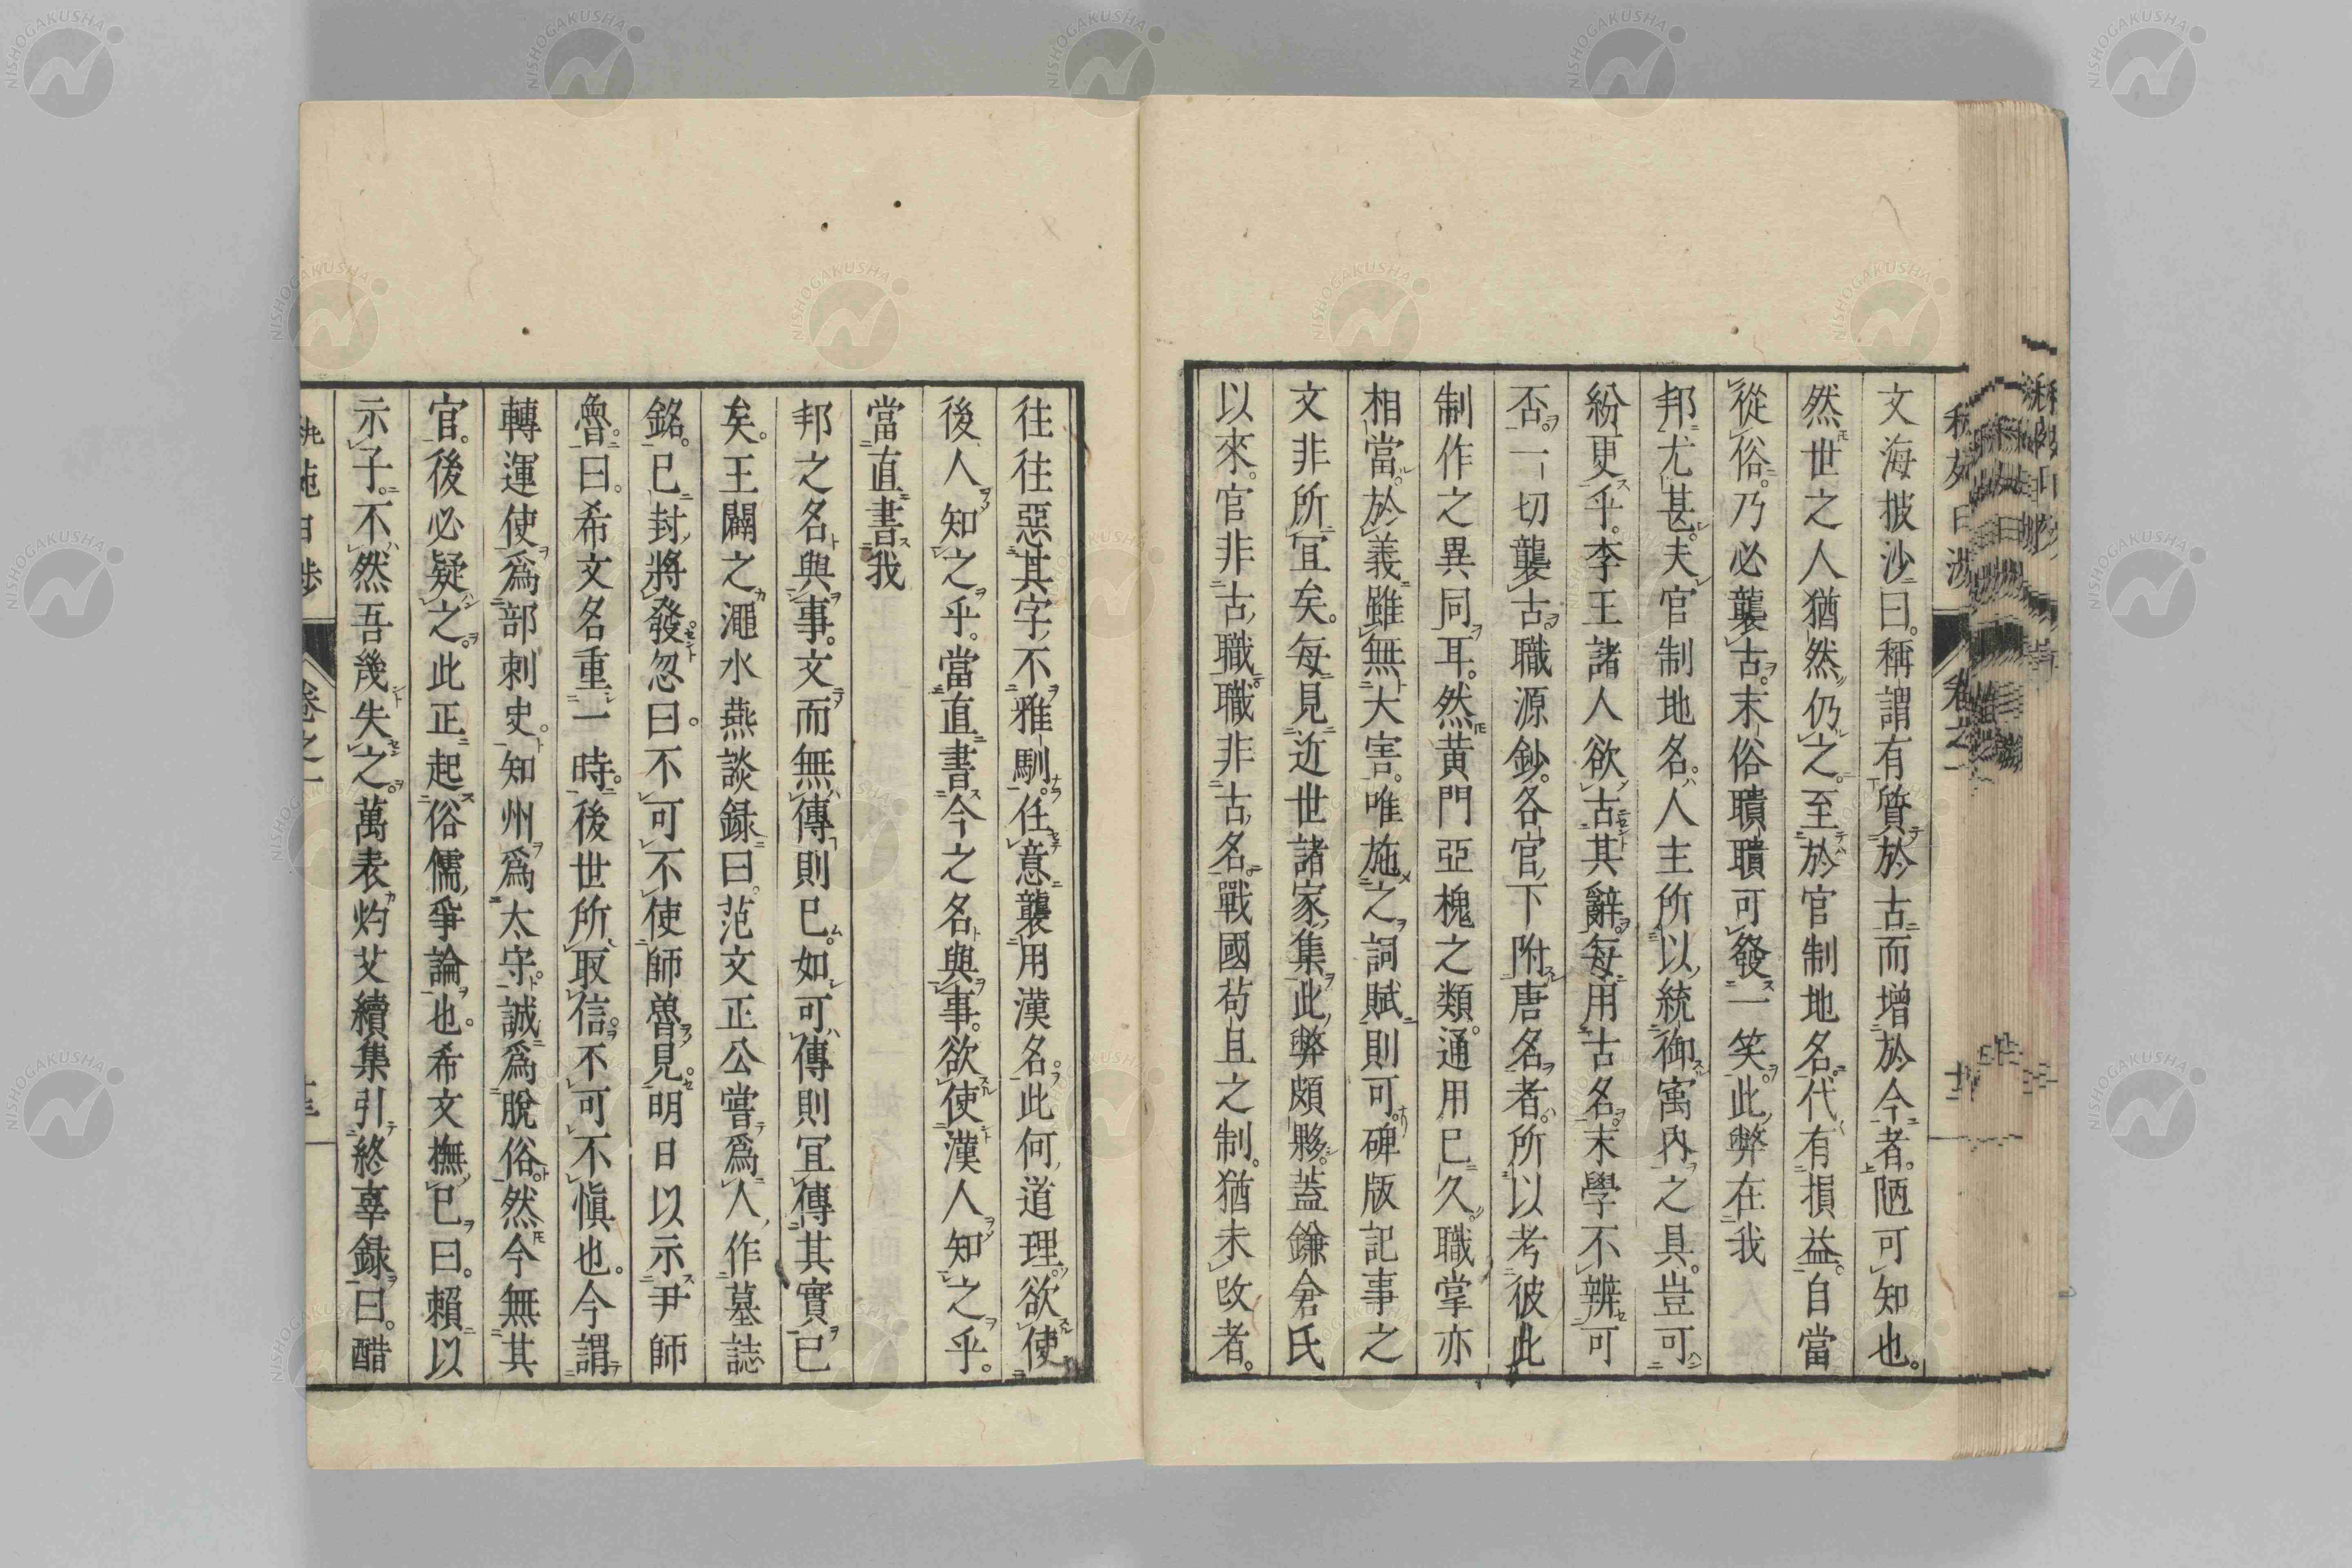 文海披沙曰。稱謂有質於古而增於今者。陋可知也。
然世之人猶然仍之。至於官制地名。代有損益。自當
從俗。乃必襲古。末俗聵聵可發一笑。此弊在我
邦尤甚。夫官制地名。人主所以統御寓內之具。豈可
紛更乎。李王諸人欲古其辭。每用古名。末學不辨可
否。一切襲古。職源鈔。各官下附唐名者。所以考彼此
制作之異同耳。然黃門亞槐之類。通用已久。職掌亦
相當。於義雖無大害。唯施之詞賦則可。碑版記事之
文非所宜矣。每見近世諸家集。此弊頗夥。蓋鎌倉氏
以來。官非古職。職非古名。戰國苟且之制。猶未改者。
往往惡其字不雅馴。任意襲用漢名。此何道理。欲使
後人知之乎。當直書今之名與事。欲使漢人知之乎。
當直書我
邦之名與事。文而無傳則已。如可傳則宜傳其實已
矣。王闢之澠水燕談錄曰。范文正公嘗爲人作墓誌
銘。已封將發。忽曰。不可不使師魯見。明日以示尹師
魯。曰。希文名重一時。後世所取信。不可不愼也。今謂
轉運使爲部刺史。知州爲太守。誠爲脫俗。然今無其
官。後必疑之。此正起俗儒爭論也。希文撫已曰。賴以
示子。不然吾幾失之。萬表灼艾續集引終辜録曰。醋
卷之一